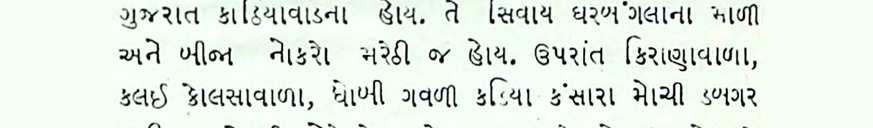 ગુજરાત કાઠિયાવાડના હોય. તે સિવાય ઘરબંગલાના માળી
અને બીજા નોકરો મરેઠી જ હોય. ઉપરાંત કિરાણાવાળા,
કલઈ કોલસાવાળા, ધોબી ગવળી કડિયા કંસારા મોચી ડબગર